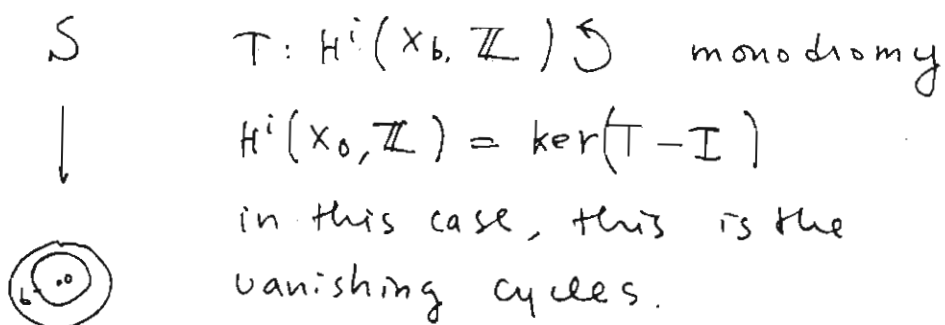 S T: Hⁱ(X_b, ℤ) ↺ monodromy
Hⁱ(X₀, ℤ) = ker(T - I)
in this case, this is the
b 0 vanishing cycles.